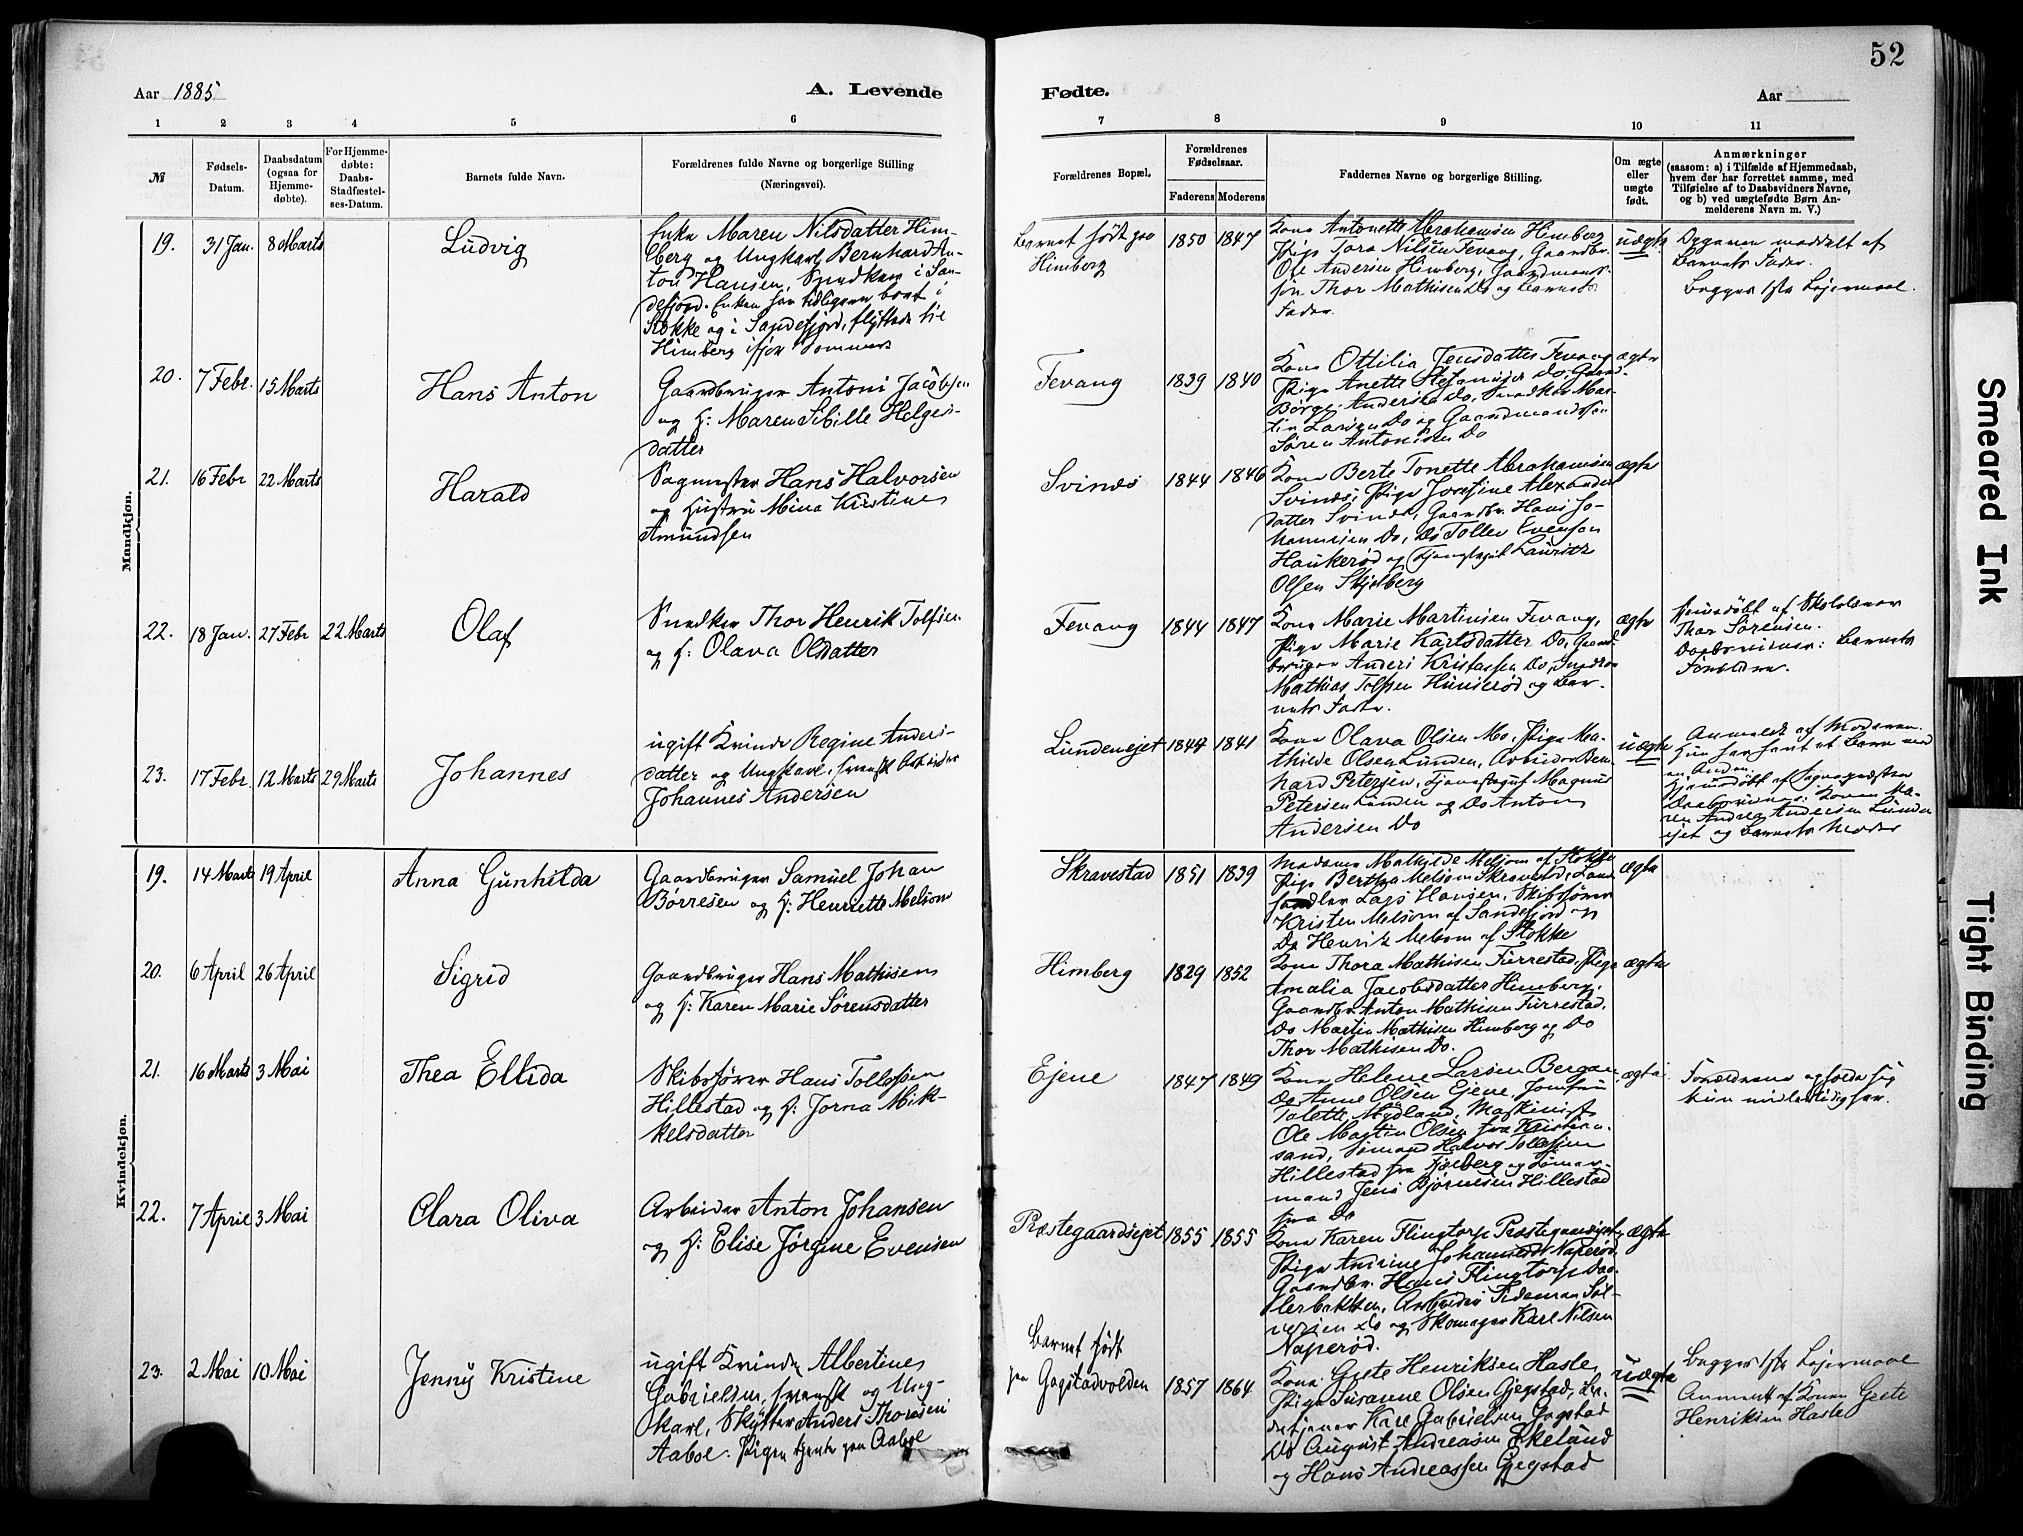 52
Aar 1885
A. Levende
Fødte.
Aar
1 2 3 4 5 6 7 8 9 10 11
№
Fødsels-
Datum.
Daabsdatum
(ogsaa for
Hjemme-
døbte).
For Hjemme-
døbte:
Daabs-
Stadfæstel-
ses-Datum.
Barnets fulde Navn.
Forældrenes fulde Navne og borgerlige Stilling
(Næringsvei).
Forældrenes Bopæl.
Forældrenes
Fødselsaar.
Faderens Moderens
Faddernes Navne og borgerlige Stilling.
Om ægte
eller
uægte
født.
Anmærkninger
(saasom: a) i Tilfælde af Hjemmedaab,
hvem der har forrettet samme, med
Tilføielse af to Daabsvidners Navne,
og b) ved uægtefødte Børn An-
melderens Navn m. V.)
Mandkjøn.
19. 31 Jan. 8 Marts
Ludvig
Enke Maren Nilsdatter Him-
berg og Ungkarl Bernhard An-
ton Hansen, Snedker i San-
defjord. Enken har tidligere boet i
Stokke og i Sandefjord, flyttede til
Himberg ifjor Sommer
Barnet født paa
Himberg
1850 1847
Kone Antonette Abrahamsen Himberg
Pige Tora Nilsen Fevang, Gaardbr.
Ole Andersen Himberg, Gaardmands-
søn Thor Mathisen Do og Barnets
Fader.
uægte
Opgaven meddelt af
Barnets Fader.
Begges 1ste Lejermaal.
20. 7 Febr. 15 Marts
Hans Anton
Gaardbruger Antoni Jacobsen
og H: Maren Sibille Helges-
datter
Fevang
1839 1840
Kone Ottilia Jensdatter Fevang
Pige Anette Do, Gaard-
Børge Andersen Do, Snedker Mar-
tin Larsen Do og Gaardmandssøn
Søren Antonisen Do
ægte
21. 16 Febr 22 Marts
Harald
Sagmester Hans Halvorsen
og Hustru Mina Kristine
Amundsen
Svinæs
1844 1846
Kone Berte Tonette Abrahamsen
Svinæs, Pige Josefine Alexander
datter Svinæs, Gaardbr. Hans Jo-
hannesen Do, Do Tollev Evensen
Haukerød og Tjenstegut Lauritz
Olsen Skjelberg
ægte
22. 18 Jan. 27 Febr 22 Marts
Olaf
Snedker Thor Henrik Tolfsen
og H: Olava Olsdatter
Fevang
1844 1847
Kone Marie Martinsen Fevang,
Pige Marie Karlsdatter Do, Gaard-
bruger Anders Kristassen Do, Snedker
Mathias Tolfsen Hunserød og Bar-
nets Fader.
ægte
Hjemdøbt af Skolelærer
Thor Sørensen.
Daabsvidner: Barnets
Forældre.
23. 17 Febr. 12 Marts 29 Marts
Johannes
ugift Kvinde Regine Anders-
datter og Ungkarl, svensk Arbeider
Johannes Andersen
Lundenejet
1847 1841
Kone Olava Olsen Mo, Pige Ma-
thilde Olsen Lunden, Arbeider Bern
hard Petersen, Tjenstegut Magnus
Petersen Lunden og Do Anton
Andersen Do
uægte
Anmeldt af Moderen.
Hun har havt et Barn med
en Anden.
Hjemmedøbt af Sognepræsten
Daabsvidner: Konen Ma-
ren Andrea Andersen Lunden
ejet og Barnets Moder
Kvindekjøn.
19. 14 Marts 19 April
Anna Gunhilda
Gaardbruger Samuel Johan
Børresen og H: Henriette Melsom
Skravestad
1851 1839
Madame Mathilde Melsom af Stokke
Pige Bertha Melsom Skravestad, Land
handler Lars Hansen, Skibsfører
Kristen Melsom af Sandefjord og
Do Henrik Melsom af Stokke
ægte
20. 6 April 26 April
Sigrid
Gaardbruger Hans Mathisen
og H: Karen Marie Sørensdatter
Himberg
1829 1852
Kone Thora Mathisen Furrestad, Pige
Amalia Jacobsdatter Himberg,
Gaardbr. Anton Mathisen Furrestad,
Do Martin Mathisen Himberg og Do
Thor Mathisen Do.
ægte
21. 16 Marts 3 Mai
Thea Elida
Skibsfører Hans Tollefsen
Hillestad og H: Jorna Mik-
kelsdatter
Ejene
1847 1849
Kone Helene Larsen Bergan
Do Anne Olsen Ejene, Jomfru
Talette Mydland, Maskinist
Ole Martin Olsen fra Kristian-
sand, Sømand Halvor Tollefsen
Hillestad fra Fjelberg og Sømand
mand Jens Bjørnesen Hillestad
fra Do
ægte
Forældrene opholde sig
kun midlertidig her.
22. 7 April 3 Mai
Clara Oliva
Arbeider Anton Johansen
og H: Elise Jørgine Evensen
Præstegaardsejet
1855 1855
Kone Karen Flingtorp Præstegaardsejet
Pige Andrine Johannesdt Naperød,
Gaardbr. Hans Flingtorp Daa-
lerbakken, Arbeider Sideman Sal-
vesen Do og Skomager Karl Nilsen
Naperød.
ægte
23. 2 Mai 10 Mai
Jenny Kristine
ugift Kvinde Albertine
Gabrielsen, svensk og Ung-
karl, Skytter Anders Thoresen
Aabol. Pigen tjente paa Aabol
Barnet født
paa Gogstadvolden
1857 1864
Kone Grete Henriksen Hasle,
Pige Susanne Olsen Gjegstad, Le-
detjener Karl Gabrielsen Gogstad
Do August Andreasen Ekelund
og Hans Andreassen Gjegstad
uægte
Begges 1ste Lejermaal
Anmeldt af Konen Grete
Henriksen Hasle
Smeared Ink
Tight Binding